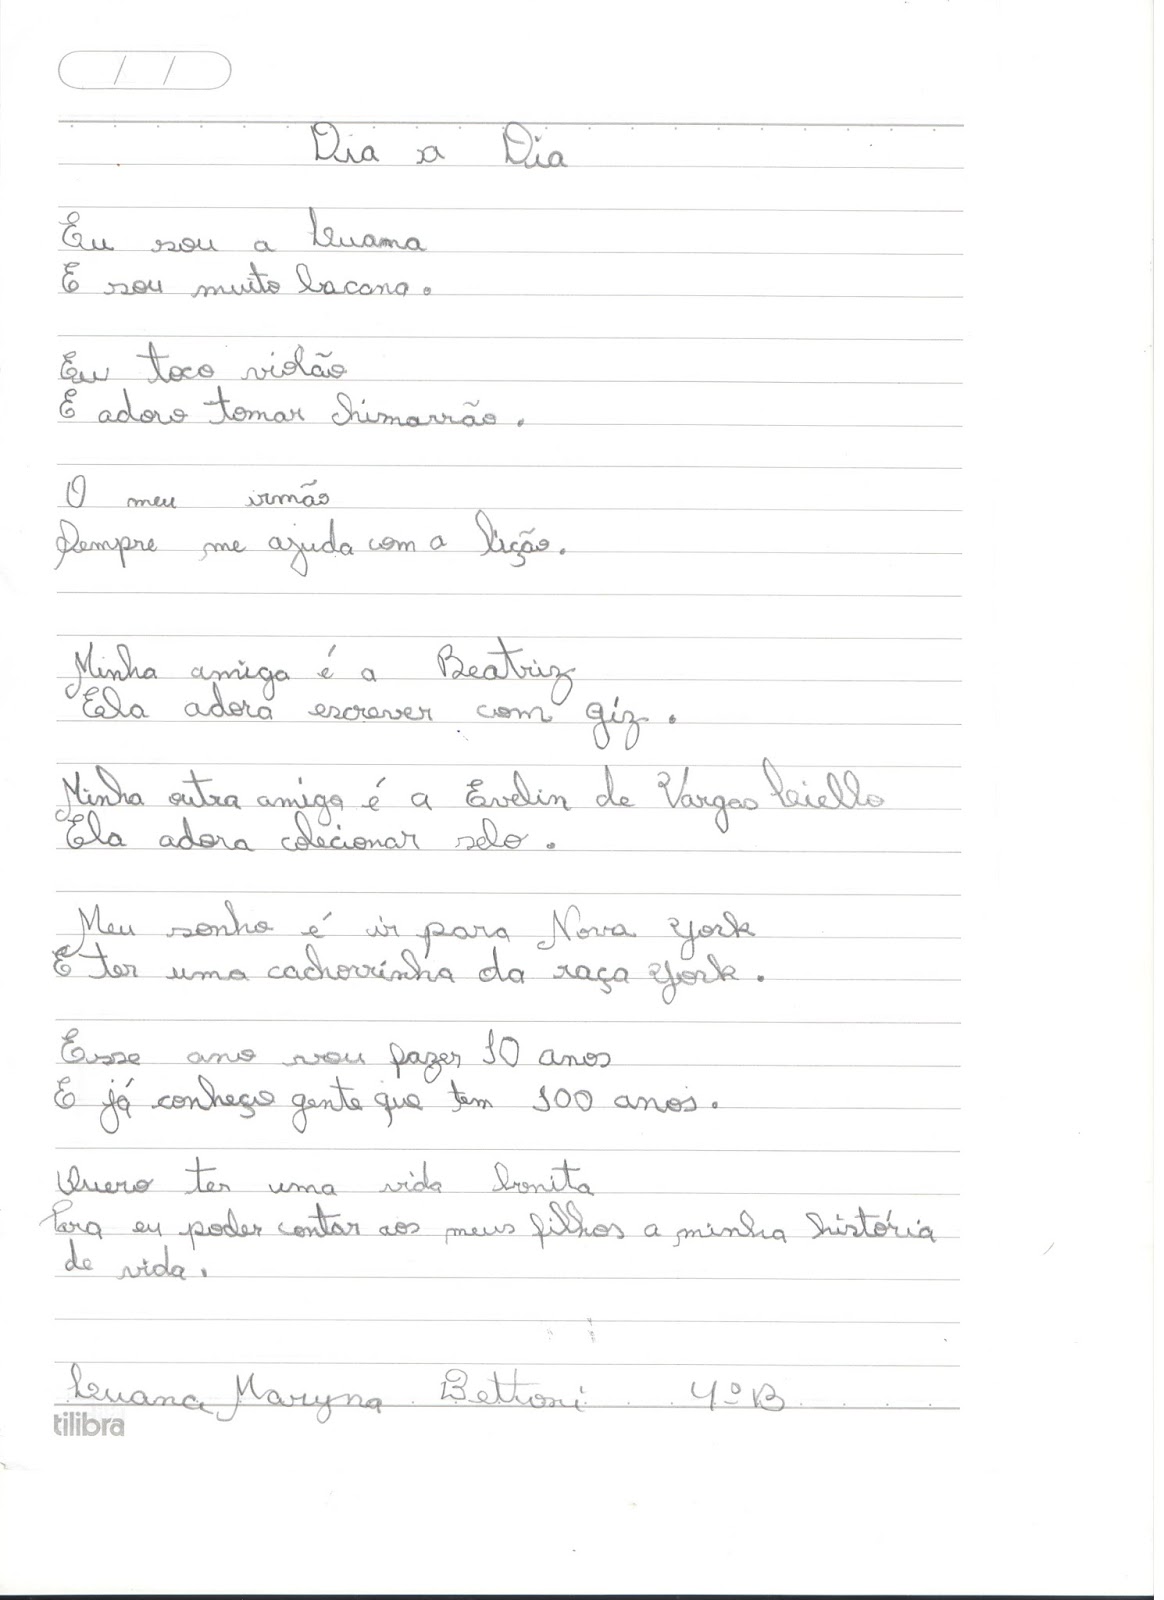 / /
Dia a Dia
Eu sou a Luana
E sou muito bacana.
Eu toco violão
E adoro tomar chimarrão.
O meu irmão
Sempre me ajuda com a lição.
Minha amiga é a Beatriz
Ela adora escrever com giz.
Minha outra amiga é a Evelin de Vargas
Ela adora colecionar selo.
Meu sonho é ir para Nova York
E ter uma cachorrinha da raça York.
Esse ano vou fazer 10 anos
E já conheço gente que tem 100 anos.
Quero ter uma vida bonita
Para eu poder contar aos meus filhos a minha história
de vida.
Luana Maryna Bettoni 4º B
tilibra